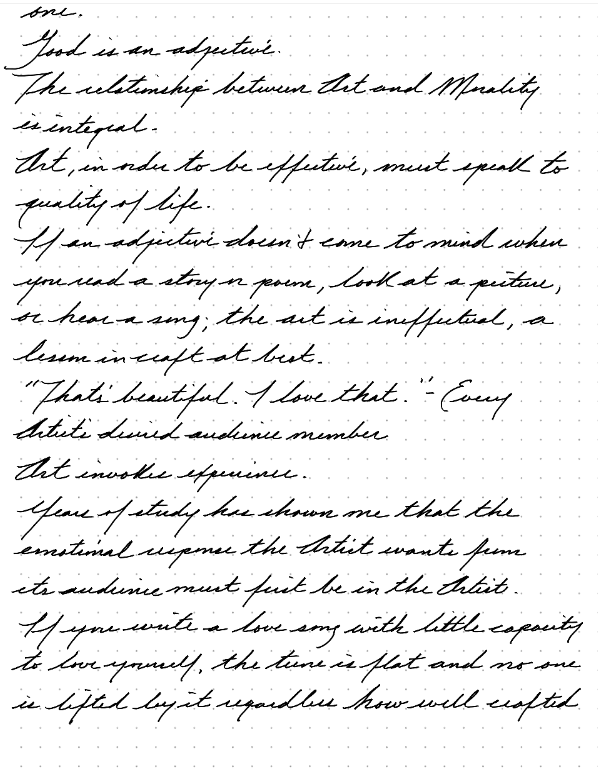 one.
Good is an adjective.
The relationship between Art and Morality
is integral.
Art, in order to be effective, must speak to
quality of life.
If an adjective doesn't come to mind when
you read a story or poem, look at a picture,
or hear a song; the art is ineffectual, a
lesson in craft at best.
"That's beautiful. I love that." - Every
Artist's desired audience member
Art invokes experience.
Years of study has shown me that the
emotional response the Artist wants from
its audience must first be in the Artist.
If you write a love song with little capacity
to love yourself, the tune is flat and no one
is lifted by it regardless how well crafted